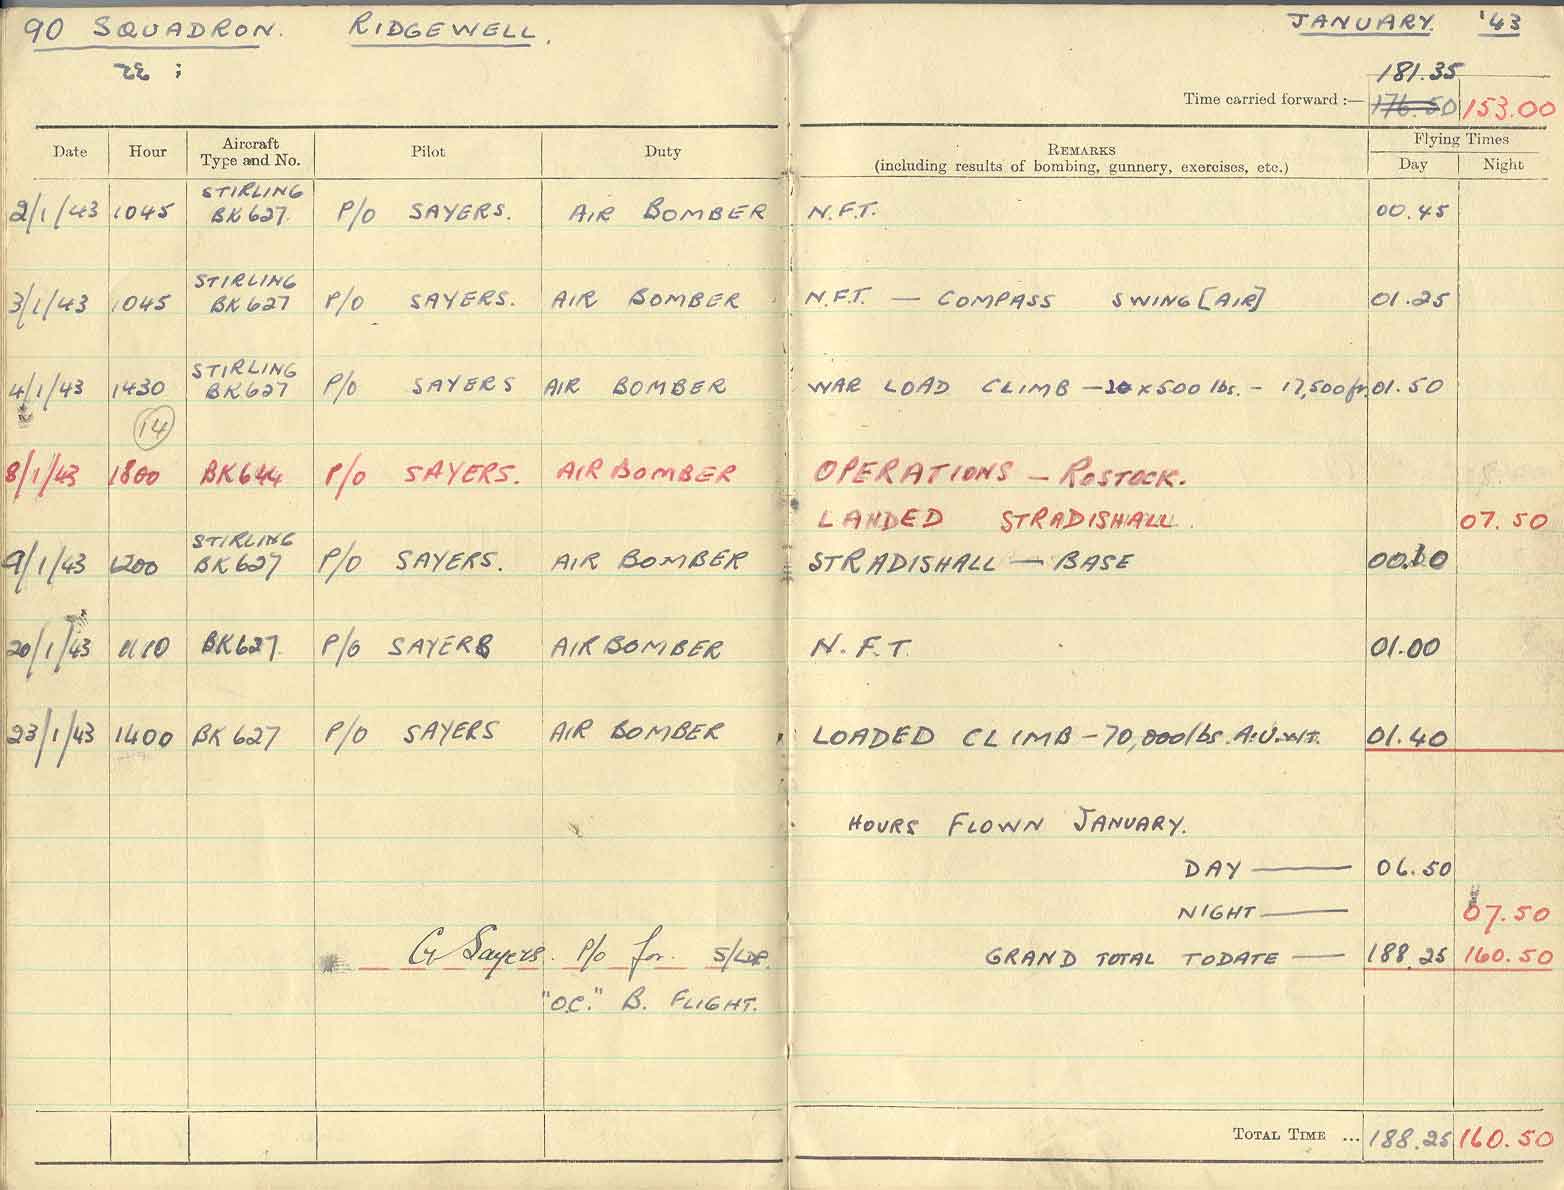 90 SQUADRON. RIDGEWELL.
JANUARY. '43
181.35
Time carried forward :— 176.50 153.00
Date Hour Aircraft Type and No. Pilot Duty REMARKS (including results of bombing, gunnery, exercises, etc.) Flying Times Day Night
2/1/43 1045 STIRLING BK627. P/O SAYERS. AIR BOMBER N.F.T. 00.45
3/1/43 1045 STIRLING BK627 P/O SAYERS. AIR BOMBER N.F.T. — COMPASS SWING [AIR] 01.25
4/1/43 1430 STIRLING BK627 P/O SAYERS AIR BOMBER WAR LOAD CLIMB — x 500 lbs. - 17,500 ft. 01.50
14
8/1/43 1800 BK644 P/O SAYERS. AIR BOMBER OPERATIONS — ROSTOCK.
LANDED STRADISHALL. 07.50
9/1/43 1200 STIRLING BK627 P/O SAYERS. AIR BOMBER STRADISHALL — BASE 00.10
20/1/43 1110 BK627. P/O SAYERS AIR BOMBER N.F.T. 01.00
23/1/43 1400 BK627 P/O SAYERS AIR BOMBER LOADED CLIMB — 70,000 lbs. A.U.WT. 01.40
HOURS FLOWN JANUARY.
DAY —— 06.50
NIGHT —— 07.50
G Sayers. P/O for S/LDR. GRAND TOTAL TODATE — 188.25 160.50
"O.C." B. FLIGHT.
TOTAL TIME ... 188.25 160.50